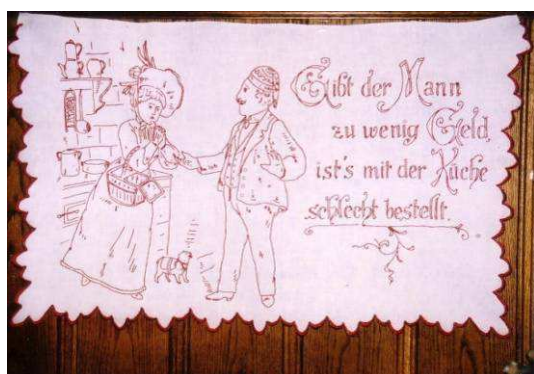 Gibt der Mann
zu wenig Geld,
ist's mit der Küche
schlecht bestellt.